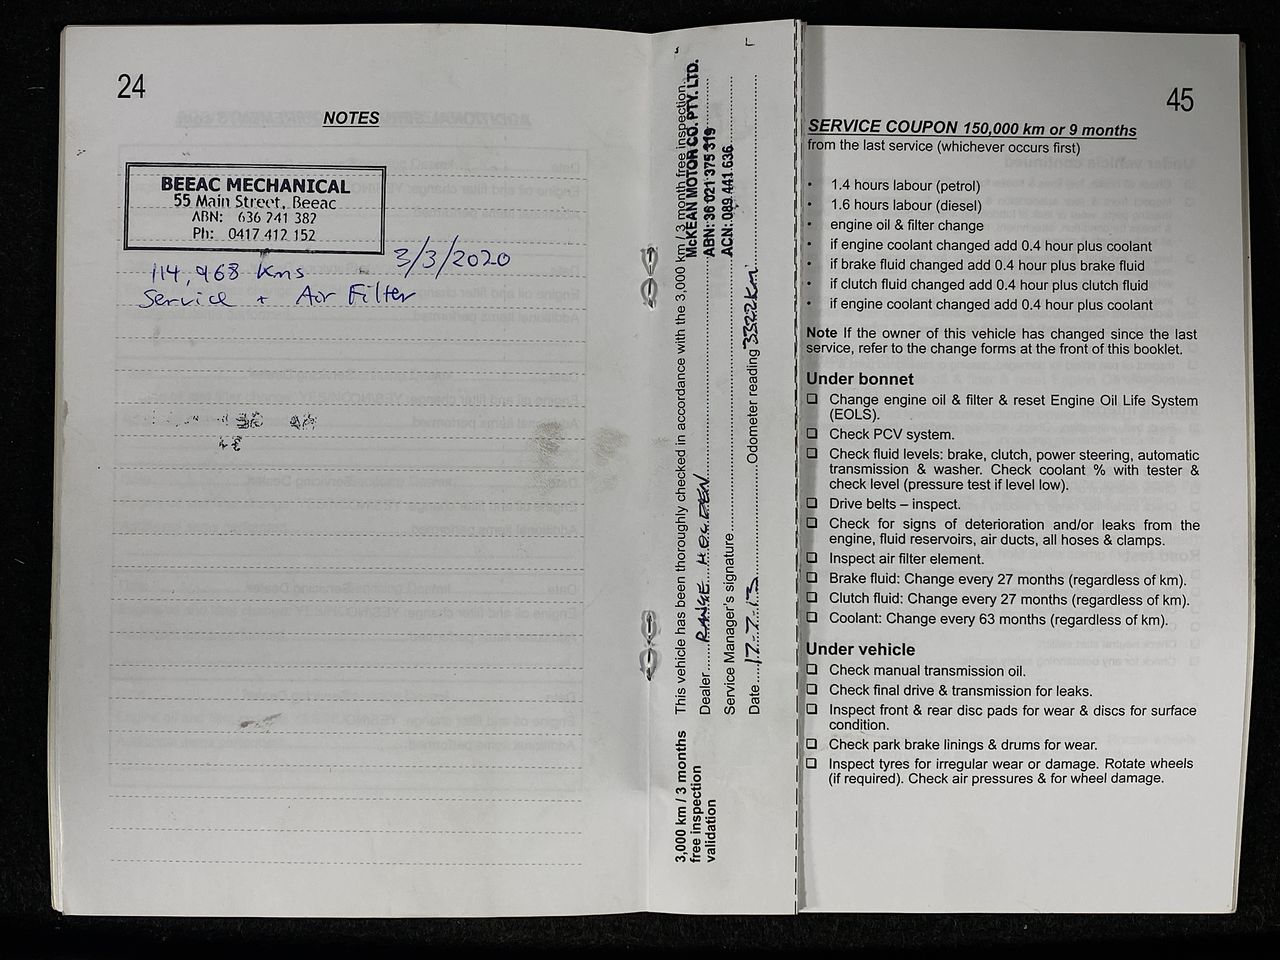 24
NOTES
BEEAC MECHANICAL
55 Main Street, Beeac
ABN: 636 241 382
Ph: 0417 412 152
3/3/2020
114,968 Kms
Service + Air Filter
3,000 km / 3 months
free inspection
validation
This vehicle has been thoroughly checked in accordance with the 3,000 km / 3 month free inspection.
McKEAN MOTOR CO. PTY. LTD.
Dealer RANGE HOLDEN
ABN: 36 021 375 319
Service Manager's signature
ACN: 089 441 636
Date 17-7-13 Odometer reading 3322km
45
SERVICE COUPON 150,000 km or 9 months
from the last service (whichever occurs first)
• 1.4 hours labour (petrol)
• 1.6 hours labour (diesel)
• engine oil & filter change
• if engine coolant changed add 0.4 hour plus coolant
• if brake fluid changed add 0.4 hour plus brake fluid
• if clutch fluid changed add 0.4 hour plus clutch fluid
• if engine coolant changed add 0.4 hour plus coolant
Note If the owner of this vehicle has changed since the last
service, refer to the change forms at the front of this booklet.
Under bonnet
❑ Change engine oil & filter & reset Engine Oil Life System
(EOLS).
❑ Check PCV system.
❑ Check fluid levels: brake, clutch, power steering, automatic
transmission & washer. Check coolant % with tester &
check level (pressure test if level low).
❑ Drive belts – inspect.
❑ Check for signs of deterioration and/or leaks from the
engine, fluid reservoirs, air ducts, all hoses & clamps.
❑ Inspect air filter element.
❑ Brake fluid: Change every 27 months (regardless of km).
❑ Clutch fluid: Change every 27 months (regardless of km).
❑ Coolant: Change every 63 months (regardless of km).
Under vehicle
❑ Check manual transmission oil.
❑ Check final drive & transmission for leaks.
❑ Inspect front & rear disc pads for wear & discs for surface
condition.
❑ Check park brake linings & drums for wear.
❑ Inspect tyres for irregular wear or damage. Rotate wheels
(if required). Check air pressures & for wheel damage.